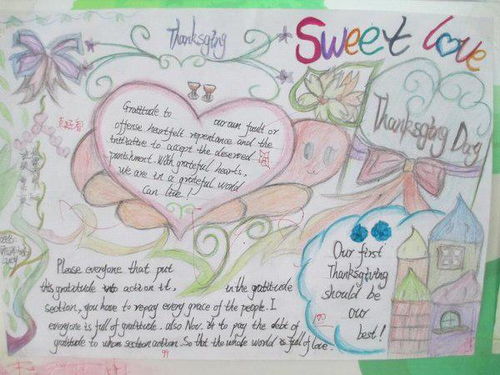 Thanksging
Sweet love
Thanksging Day
Gratitude to our own fault or
offense heartfelt repentance and the
initiative to accept the deserved
punishment. With grateful hearts.
We are in a grateful world
Can live!
Our first
Thanksgiving
should be
our
best!
Please everyone that put
this gratitude into action it, in the gratitude
section, you have to repay every grace of the people. I
everyone is full of gratitude. also Nov. to pay the debt of
gratitude to whom section action. So that the whole world is full of love.